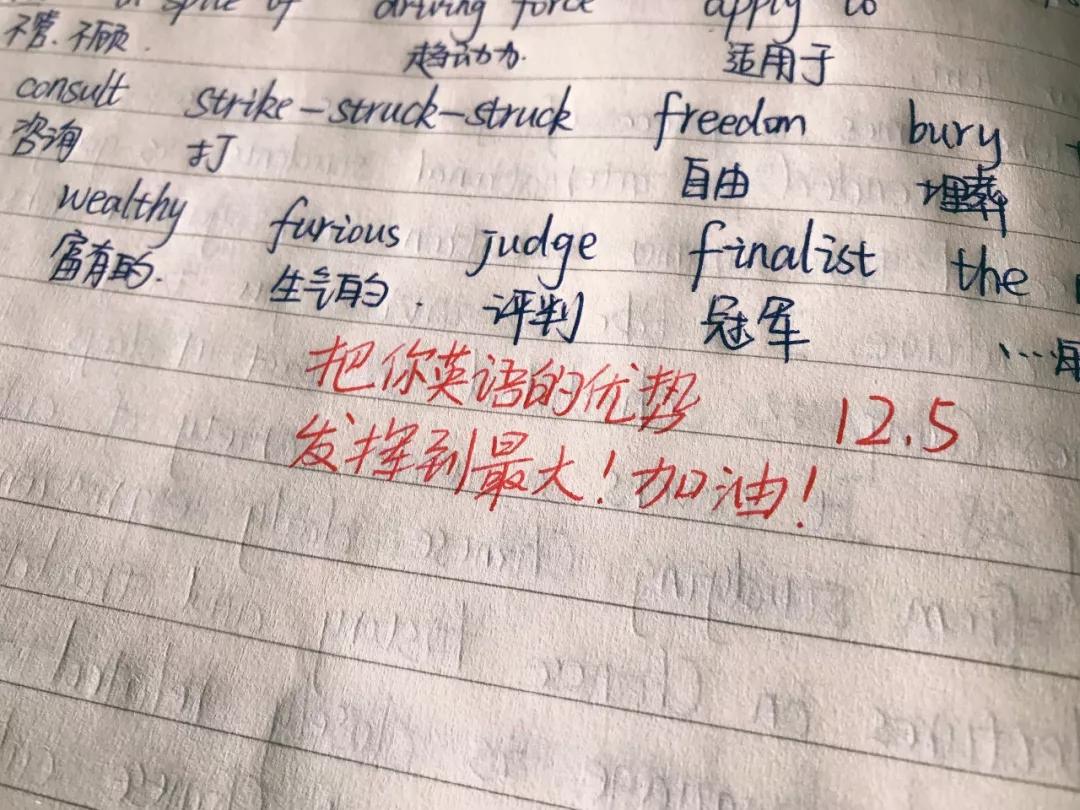 in spite of driving force apply to
不管.不顾. 趋动力. 适用于
consult strike-struck-struck freedom bury
咨询 打 自由 埋葬
wealthy furious judge finalist the
富有的. 生气的. 评判 冠军
把你英语的优势 12.5
发挥到最大!加油!